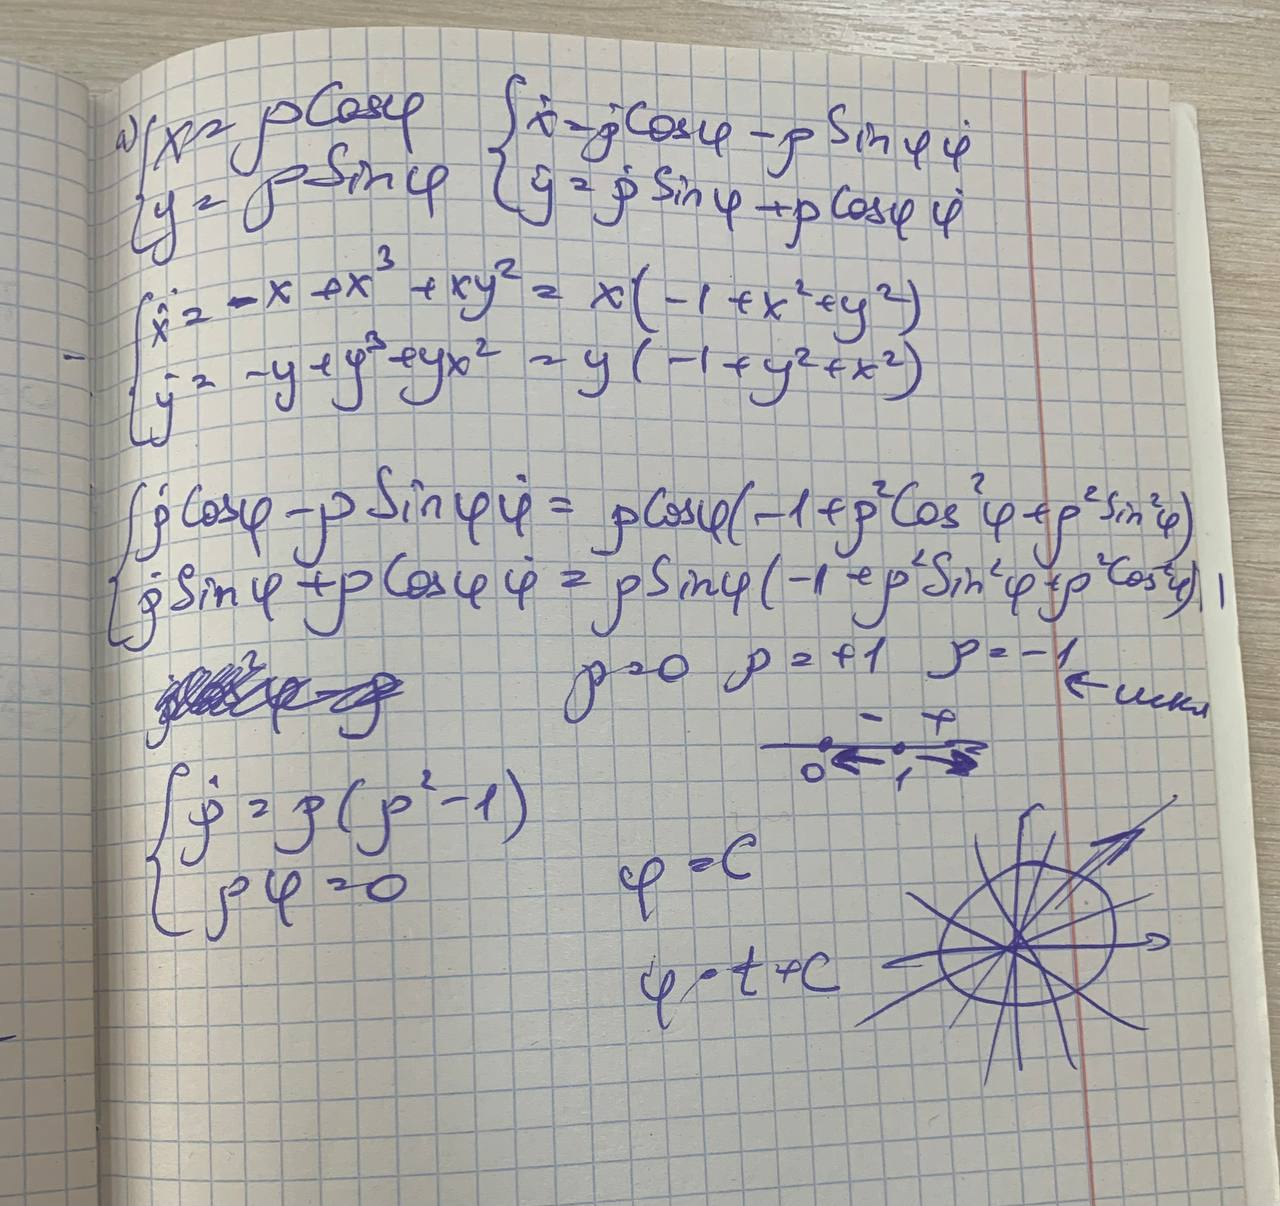 а) { x = ρ Cosφ   { ẋ = ρ̇ Cosφ - ρ Sinφ φ̇
y = ρ Sinφ   ẏ = ρ̇ Sinφ + ρ Cosφ φ̇
{ ẋ = -x + x³ + xy² = x(-1 + x² + y²)
ẏ = -y + y³ + yx² = y(-1 + y² + x²)
{ ρ̇ Cosφ - ρ Sinφ φ̇ = ρ Cosφ(-1 + ρ² Cos²φ + ρ² Sin²φ)
ρ̇ Sinφ + ρ Cosφ φ̇ = ρ Sinφ(-1 + ρ² Sin²φ + ρ² Cos²φ)
ρ = 0   ρ = +1   ρ = -1
- +
0 1
{ ρ̇ = ρ(ρ² - 1)
ρφ = 0
φ = C
φ = t + C